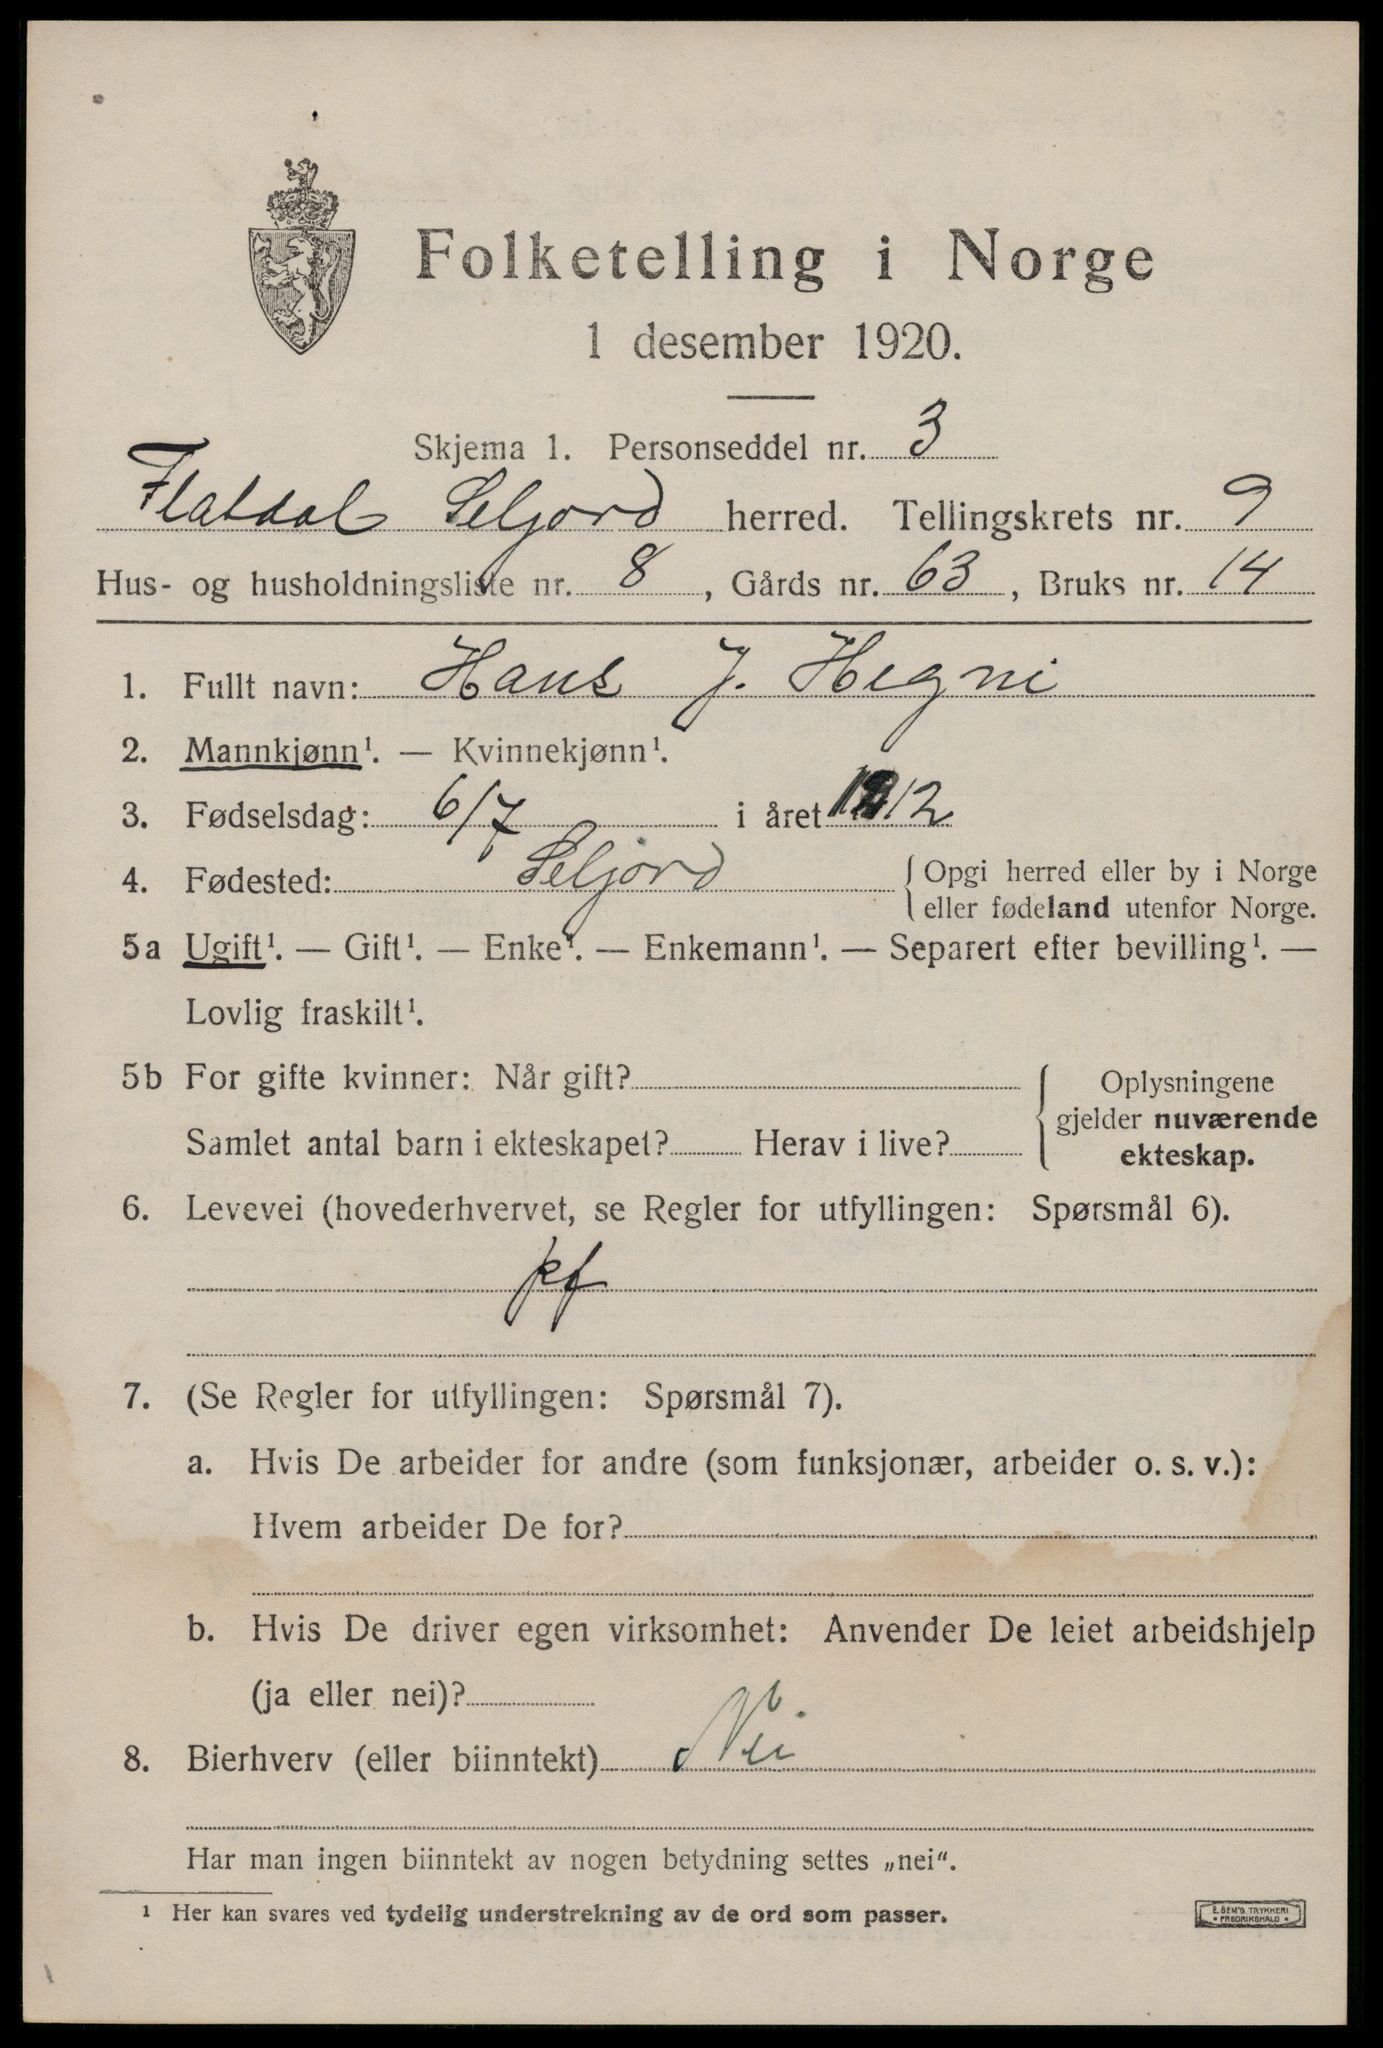 Folketelling i Norge
1 desember 1920.
Skjema 1. Personseddel nr. 3
Flatdal Seljord herred. Tellingskrets nr. 9
Hus- og husholdningsliste nr. 8, Gårds nr. 63, Bruks nr. 14
1. Fullt navn: Hans J. Hegni
2. Mannkjønn¹. — Kvinnekjønn¹.
3. Fødselsdag: 6/7 i året 1912
4. Fødested: Seljord {Opgi herred eller by i Norge
eller fødeland utenfor Norge.
5a Ugift¹. — Gift¹. — Enke¹. — Enkemann¹. — Separert efter bevilling¹. —
Lovlig fraskilt¹.
5b For gifte kvinner: Når gift? {Oplysningene
gjelder nuværende
Samlet antal barn i ekteskapet? Herav i live?
ekteskap.
6. Levevei (hovederhvervet, se Regler for utfyllingen: Spørsmål 6).
pf
7. (Se Regler for utfyllingen: Spørsmål 7).
a. Hvis De arbeider for andre (som funksjonær, arbeider o. s. v.):
Hvem arbeider De for?
b. Hvis De driver egen virksomhet: Anvender De leiet arbeidshjelp
(ja eller nei)?
8. Bierhverv (eller biinntekt) Nei
Har man ingen biinntekt av nogen betydning settes „nei“.
¹ Her kan svares ved tydelig understrekning av de ord som passer.
E. SEM'S TRYKKERI
• FREDRIKSHALD •